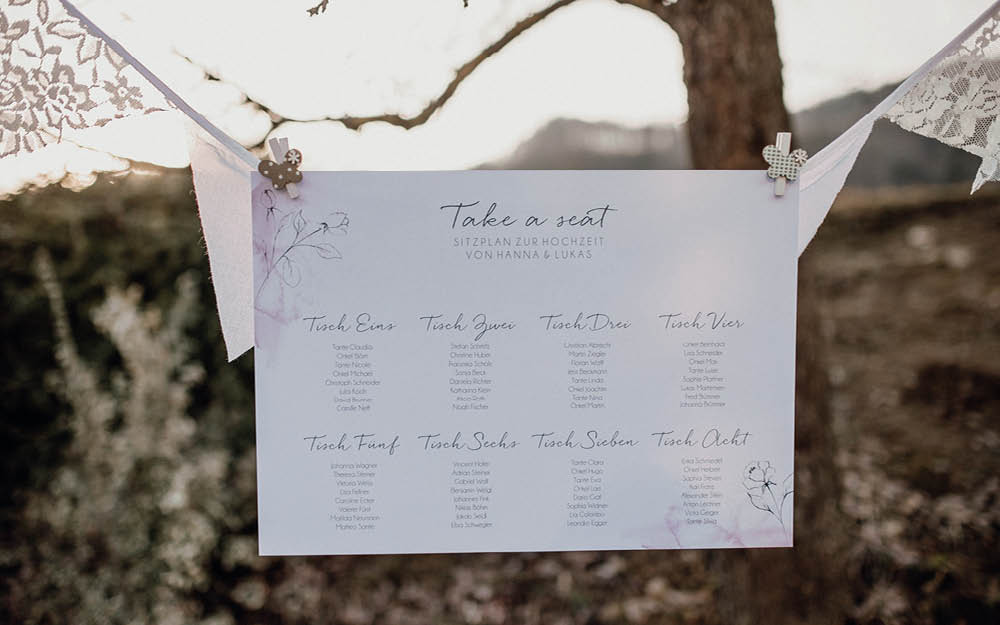 Take a seat
SITZPLAN ZUR HOCHZEIT
VON HANNA & LUKAS
Tisch Eins
Tante Claudia
Onkel Björn
Tante Nicole
Onkel Michael
Christoph Schneider
Julia Koch
David Brunner
Camille Neff
Tisch Zwei
Stefan Schmitz
Christine Huber
Franziska Scholz
Sonja Beck
Daniela Richter
Katharina Klein
Roth
Noah Fischer
Tisch Drei
Christian Albrecht
Martin Ziegler
Florian Wolff
Jens Bergmann
Tante Linda
Onkel Joachim
Tante Nina
Onkel Martin
Tisch Vier
Onkel Bernhard
Lisa Schneider
Onkel Max
Tante Luise
Sophie Plattner
Lukas Mortensen
Fred Brümmer
Johanna Brümmer
Tisch Fünf
Johanna Wagner
Theresa Steiner
Viktoria Weiss
Lisa Fellner
Caroline Ecker
Valerie Fürst
Matilda Neumann
Matteo Sante
Tisch Sechs
Vincent Hofer
Adrian Steiner
Gabriel Wolf
Benjamin Weigl
Johannes Fink
Niklas Böhm
Jakob Seidl
Elisa Schwegler
Tisch Sieben
Tante Clara
Onkel Hugo
Tante Eva
Onkel Lars
Daria Graf
Sophia Widmer
Lia Colombo
Leandra Egger
Tisch Acht
Erika Schmiedel
Onkel Herbert
Sophia Steven
Karl Franz
Alexander Stein
Anton Lechner
Viola Geiger
Tante Silvia